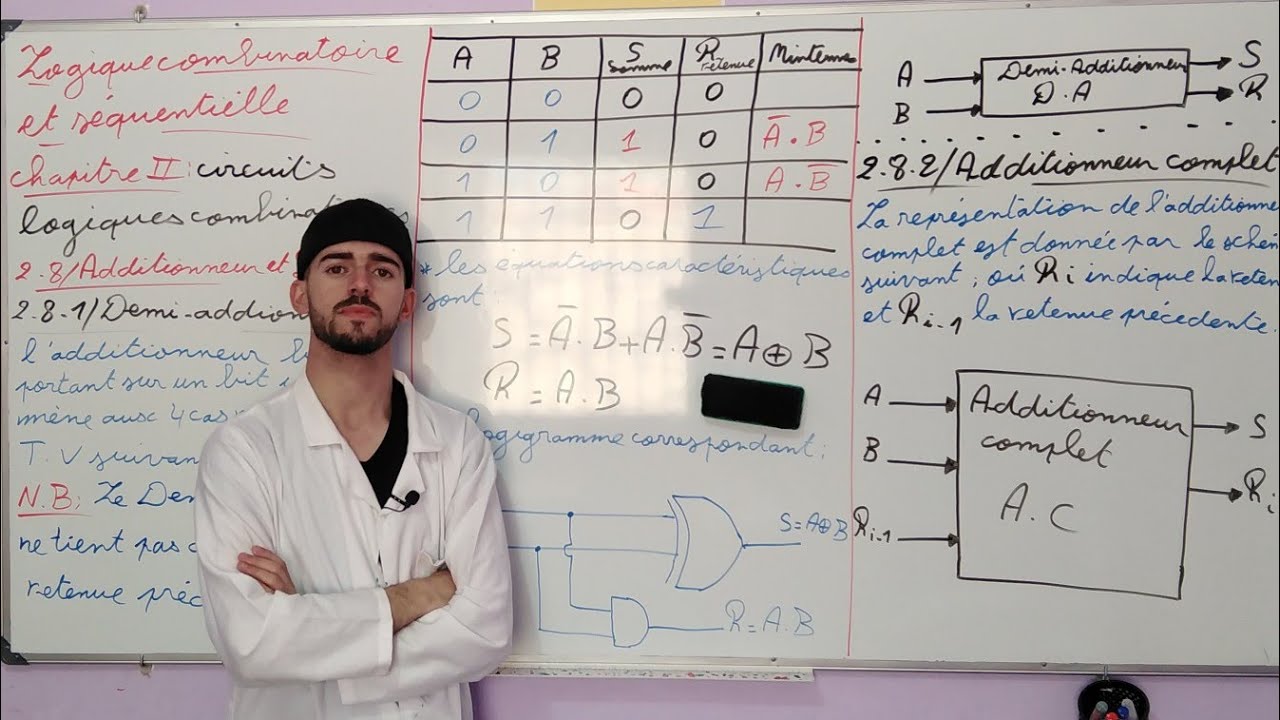 Logique combinatoire
et séquentielle
chapitre II: circuits
logiques combinatoires
2.8/Additionneur et
2.8.1/Demi-addition
l'additionneur
portant sur un bit
mène aux 4 cas
T.V suivan
N.B: Le Dem
ne tient pas
retenue préc
A B S somme R retenue Mintermes
0 0 0 0
0 1 1 0 Ā.B
1 0 1 0 A.B̄
1 1 0 1
* les équations caractéristiques
sont:
S = Ā.B + A.B̄ = A ⊕ B
R = A.B
logigramme correspondant:
S = A⊕B
R = A.B
A
B
Demi-Additionneur
D.A
S
R
2.8.2/Additionneur complet
La représentation de l'additionne
complet est donnée par le schém
suivant; où Ri indique la reten
et Ri-1 la retenue précédente.
A
B
Ri-1
Additionneur
complet
A.C
S
Ri